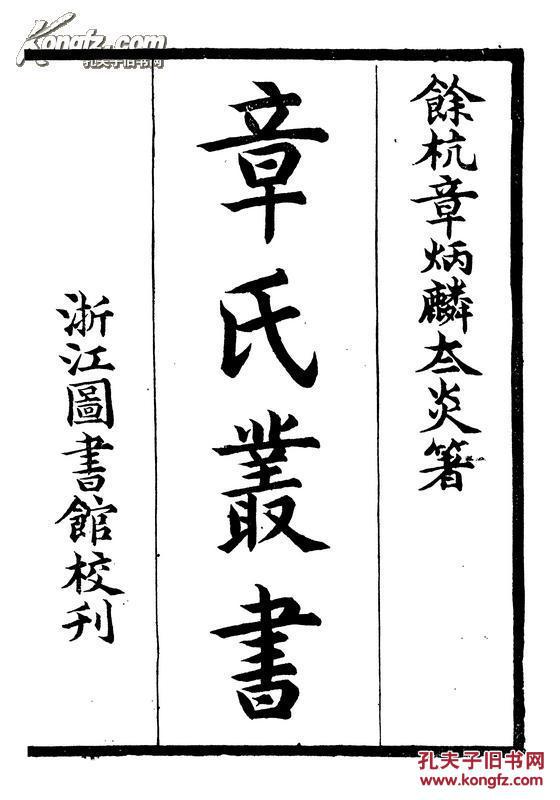 餘杭章炳麟夳炎箸
章氏叢書
浙江圖書館校刊
Kongfz.com
孔夫子旧书网
孔夫子旧书网
www.kongfz.com